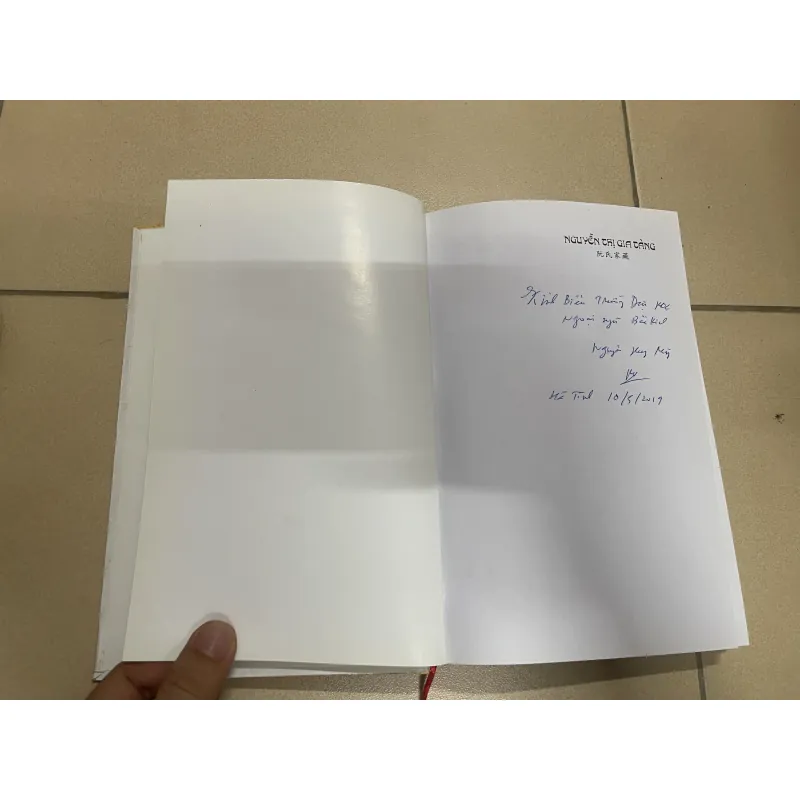 NGUYỄN THỊ GIA TÀNG
阮氏家藏
Kính Biếu Trường Đại học
Ngoại ngữ Bắc Kinh
Nguyễn Huy Mỹ
Hà Tĩnh 10/5/2019